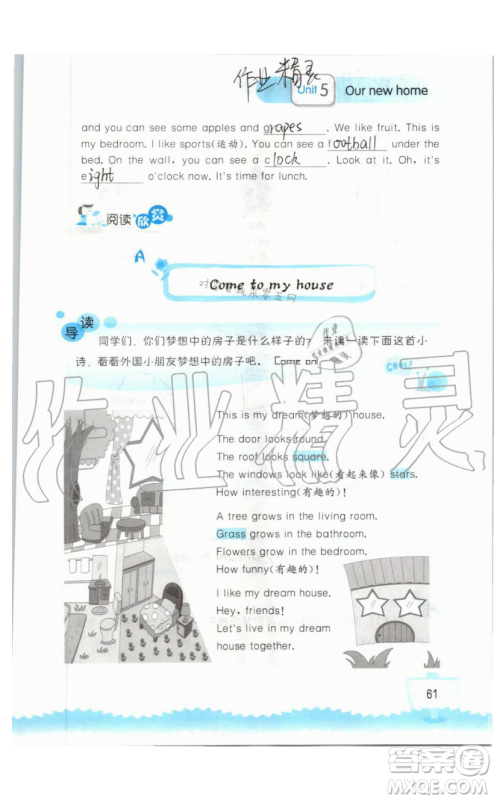 作业精灵
Unit 5 Our new home
and you can see some apples and grapes. We like fruit. This is
my bedroom. I like sports(运动). You can see a football under the
bed. On the wall, you can see a clock. Look at it. Oh, it's
eight o'clock now. It's time for lunch.
阅读·欣赏
A
Come to my house
导读
同学们，你们梦想中的房子是什么样子的？来读一读下面这首小
诗，看看外国小朋友梦想中的房子吧。 Come on!
This is my dream(梦想的)house.
The door looks round.
The roof looks square.
The windows look like(看起来像)stars.
How interesting(有趣的)!
A tree grows in the living room.
Grass grows in the bathroom.
Flowers grow in the bedroom.
How funny(有趣的)!
I like my dream house.
Hey, friends!
Let's live in my dream
house together.
作业精灵
61
答案圈
MXQE.COM